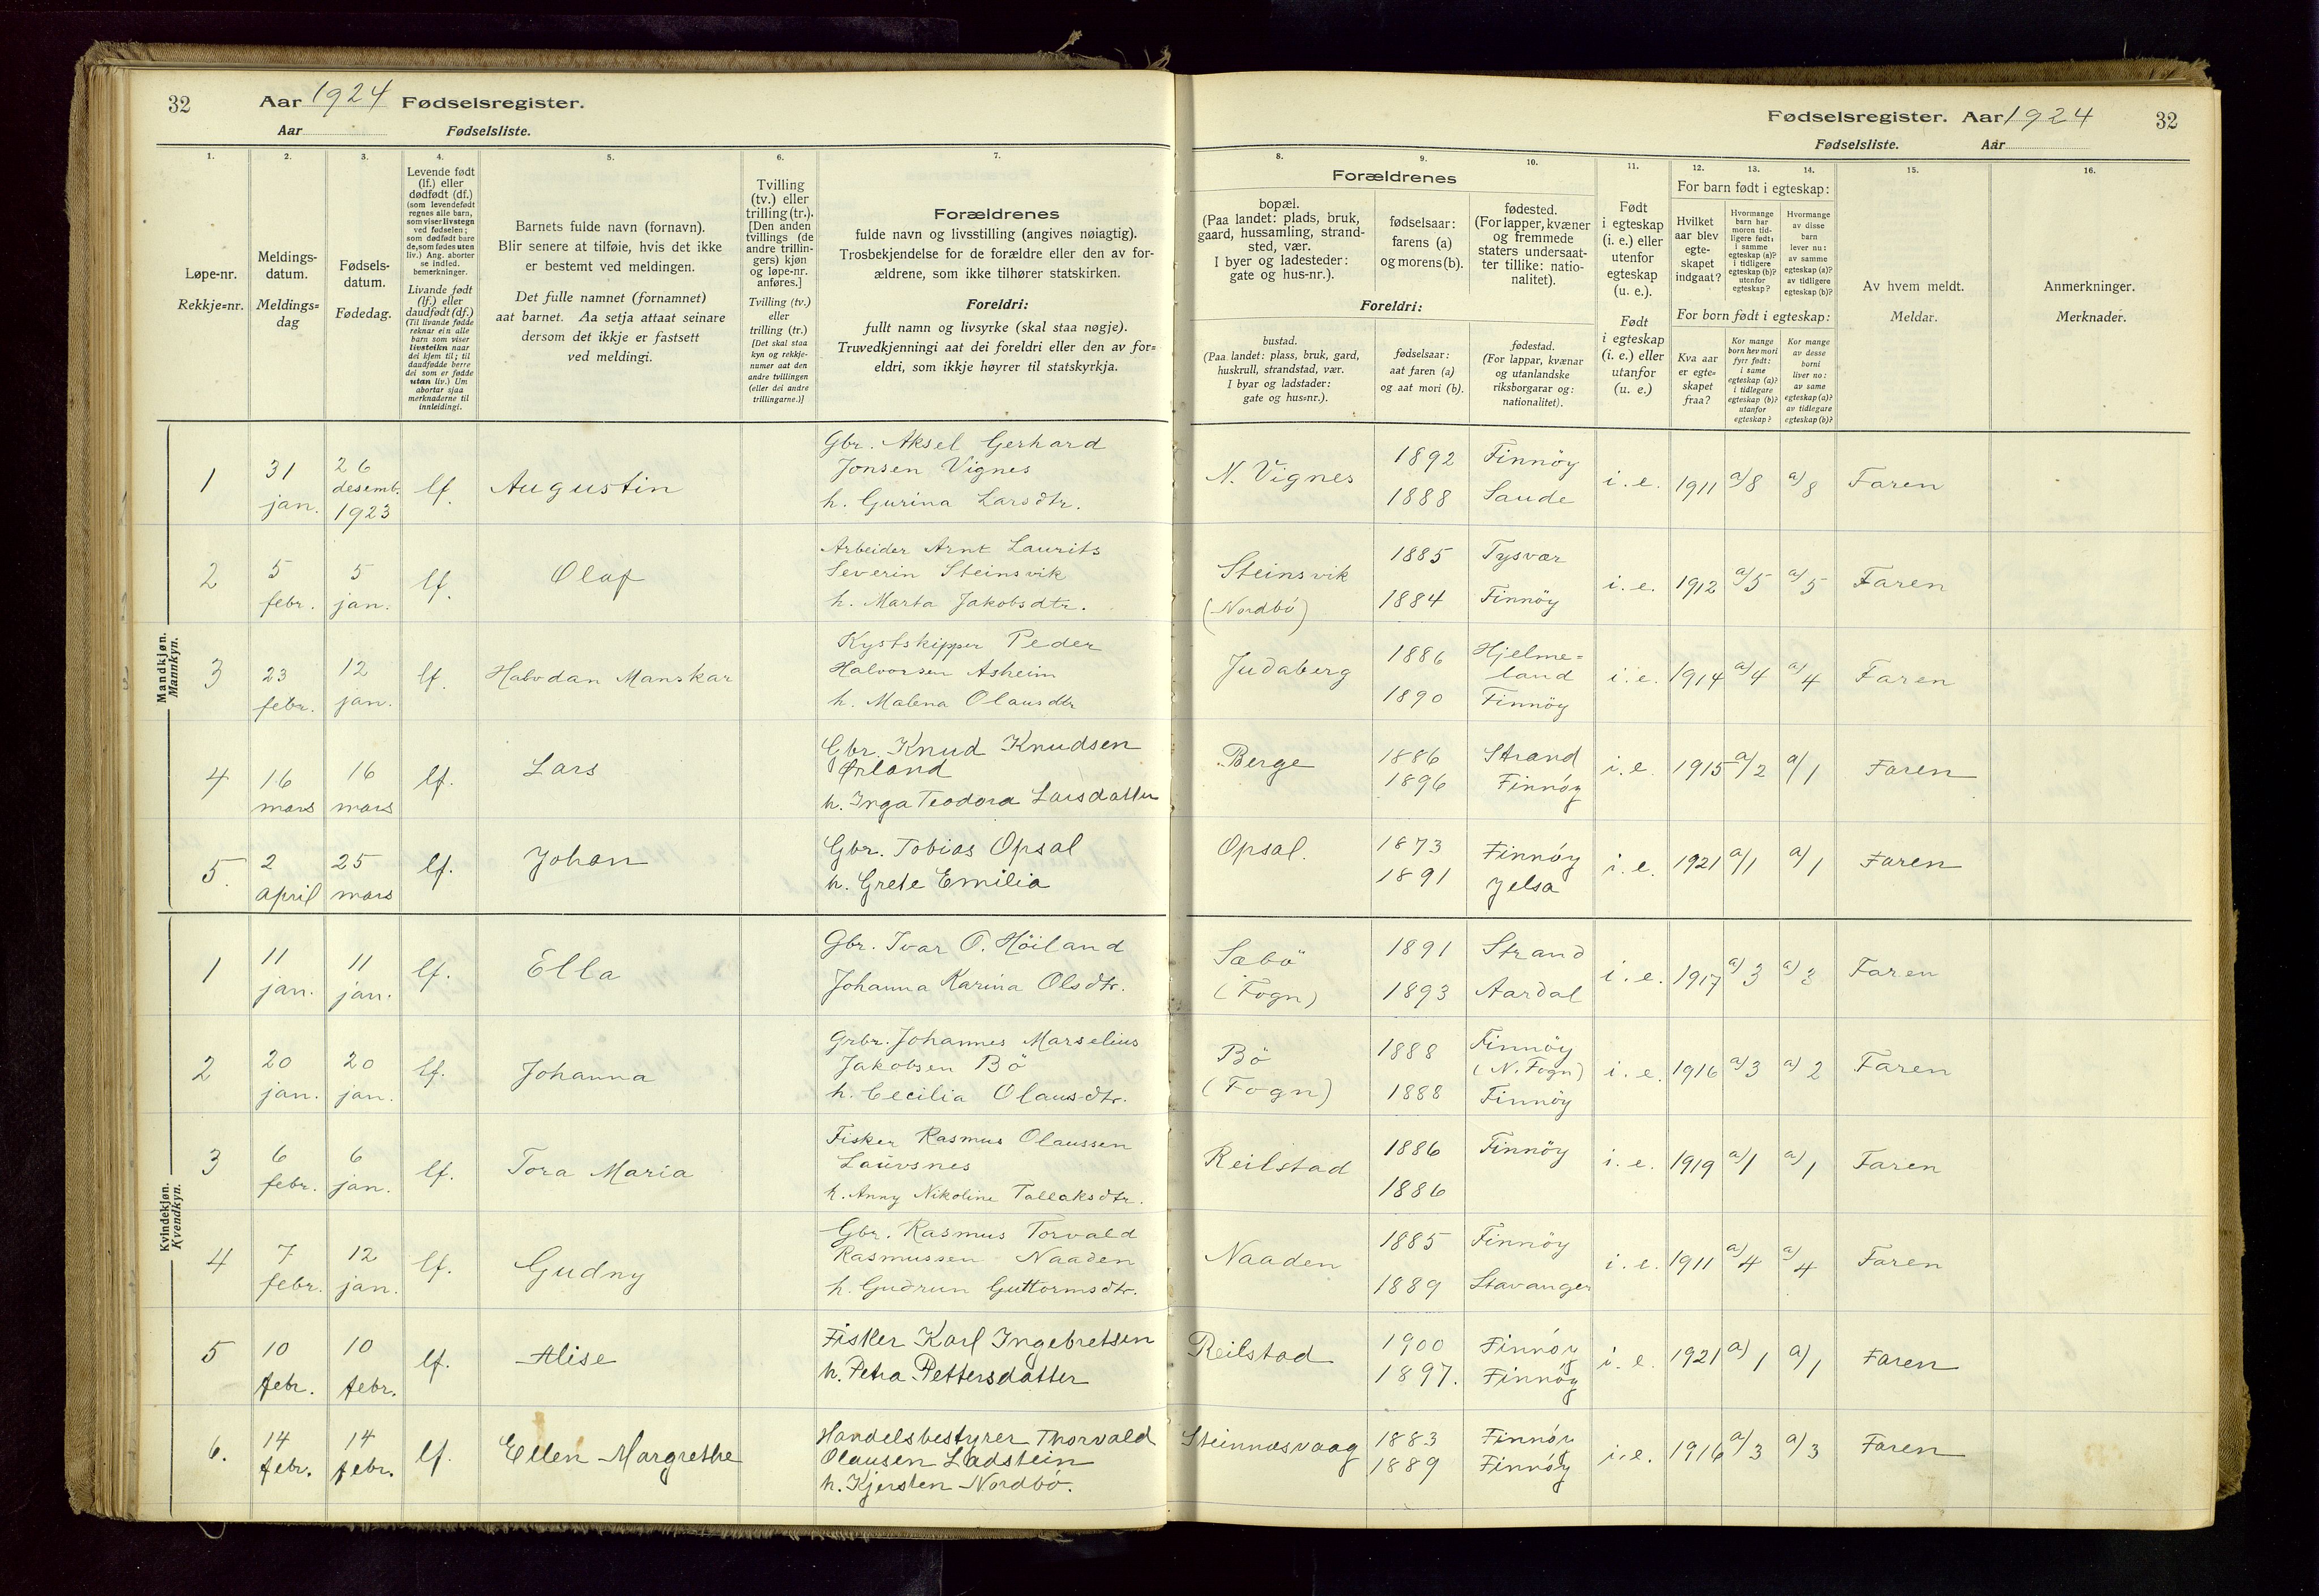 32 Aar 1924 Fødselsregister.
Aar Fødselsliste.
1. 2. 3. 4. 5. 6. 7.
Løpe-nr.
Rekkje=nr.
Meldings-
datum.
Meldings=
dag
Fødsels-
datum.
Fødedag.
Levende født
(lf.) eller
dødfødt (df.)
(som levendefødt
regnes alle barn,
som viser livstegn
ved fødselen;
som dødfødt bare
de, som fødes uten
liv.) Ang. aborter
se indled.
bemerkninger.
Livande født
(lf.) eller
daudfødt (df.)
(Til livande fødde
reknar ein alle
barn som viser
livsteikn naar
dei kjem til; til
daudfødde berre
dei som er fødde
utan liv.) Um
abortar sjaa
merknaderne til
innleidingi.
Barnets fulde navn (fornavn).
Blir senere at tilføie, hvis det ikke
er bestemt ved meldingen.
Det fulle namnet (fornamnet)
aat barnet. Aa setja attaat seinare
dersom det ikkje er fastsett
ved meldingi.
Tvilling
(tv.) eller
trilling (tr.).
[Den anden
tvillings (de
andre trillin-
gers) kjøn
og løpe-nr.
anføres.]
Tvilling (tv.)
eller
trilling (tr.)
[Det skal staa
kyn og rekkje-
numer aat den
andre tvillingen
(eller dei andre
trillingarne.)]
Forældrenes
fulde navn og livsstilling (angives nøiagtig).
Trosbekjendelse for de forældre eller den av for-
ældrene, som ikke tilhører statskirken.
Foreldri:
fullt namn og livsyrke (skal staa nøgje).
Truvedkjenningi aat dei foreldri eller den av for=
eldri, som ikkje høyrer til statskyrkja.
Mandkjøn.
Mannkyn.
1 31 jan. 26 desemb. 1923 lf. Augustin
Gbr. Aksel Gerhard
Jonsen Vignes
h. Gurina Larsdtr.
2 5 febr. 5 jan. lf. Olaf
Arbeider Arnt Laurits
Severin Steinsvik
h. Marta Jakobsdtr.
3 23 febr. 12 jan. lf. Halvdan Manskar
Kystskipper Peder
Halvorsen Asheim
h. Malena Olausdtr
4 16 mars 16 mars lf. Lars
Gbr. Knud Knudsen
Ørland
h. Inga Teodora Larsdatter
5. 2 april 25 mars lf. Johan
Gbr. Tobias Opsal
h. Grete Emilia
Kvindekjøn.
Kvendkyn.
1 11 jan. 11 jan. lf. Ella
Gbr. Ivar O. Höiland
Johanna Karina Olsdtr.
2 20 jan. 20 jan. lf. Johanna
Grbr. Johannes Marselius
Jakobsen Bö
h. Cecilia Olausdtr.
3 6 febr. 6 jan. lf. Tora Maria
Fisker Rasmus Olaussen
Lauvsnes
h. Anny Nikoline Tallaksdtr.
4 7 febr. 12 jan. lf. Gudny
Gbr. Rasmus Torvald
Rasmussen Naaden
h. Gudrun Guttormsdtr.
5 10 febr. 10 febr. lf. Alise
Fisker Karl Ingebretsen
h. Petra Pettersdatter
6. 14 febr. 14 febr. lf. Ellen Margrethe
Handelsbestyrer Thorvald
Olausen Ladstein
h. Kjersten Nordbö.
Fødselsregister. Aar 1924 32
Fødselsliste. Aar
8. 9. 10. 11. 12. 13. 14. 15. 16.
Forældrenes
bopæl.
(Paa landet: plads, bruk,
gaard, hussamling, strand-
sted, vær.
I byer og ladesteder:
gate og hus-nr.).
fødselsaar:
farens (a)
og morens (b).
fødested.
(For lapper, kvæner
og fremmede
staters undersaat-
ter tillike: natio-
nalitet).
Foreldri:
bustad.
(Paa landet: plass, bruk, gard,
huskrull, strandstad, vær.
I byar og ladstader:
gate og hus=nr.).
fødselsaar:
aat faren (a)
og aat mori (b).
fødestad.
(For lappar, kvænar
og utanlandske
riksborgarar og:
nationalitet).
Født
i egteskap
(i. e.) eller
utenfor
egteskap
(u. e.).
Født
i egteskap
(i. e.) eller
utanfor
(u. e.)
For barn født i egteskap:
Hvilket
aar blev
egte-
skapet
indgaat?
Hvormange
barn har
moren tid-
ligere født:
i samme
egteskap (a)?
i tidligere
egteskap (b)?
utenfor
egteskap?
Hvormange
av disse
barn
lever nu:
av samme
egteskap (a)?
av tidligere
egteskap (b)?
For born født i egteskap:
Kva aar
er egte=
skapet
fraa?
Kor mange
born hev mori
fyrr født:
i same
egteskap (a)?
i tidlegare
egteskap (b)?
utanfor
egteskap?
Kor mange
av desse
borni
liver no:
av same
egteskap (a)?
av tidlegare
egteskap (b)?
Av hvem meldt.
Meldar.
Anmerkninger.
Merknader.
N. Vignes 1892 Finnöy i. e. 1911 a/8 a/8 Faren
1888 Saude
Steinsvik 1885 Tysvær i. e. 1912 a/5 a/5 Faren
(Nordbö) 1884 Finnöy
Judaberg 1886 Hjelme=
land i. e. 1914 a/4 a/4 Faren
1890 Finnöy
Berge 1886 Strand i. e. 1915 a/2 a/1 Faren
1896 Finnöy
Opsal. 1873 Finnöy i. e. 1921 a/1 a/1 Faren
1891 Jelsa
Sæbö 1891 Strand i. e. 1917 a) 3 a) 3 Faren
(Fogn) 1893 Aardal
Bö 1888 Finnöy
(N. Fogn) i. e. 1916 a/3 a) 2 Faren
(Fogn) 1888 Finnöy
Reilstad 1886 Finnöy i. e. 1919 a/1 a/1 Faren
1886
Naaden 1885 Finnöy i. e. 1911 a/4 a/4 Faren
1889 Stavanger
Reilstad 1900 Finnöy i. e. 1921 a/1 a/1 Faren
1897. Finnöy
Steinnæsvaag 1883 Finnöy i. e. 1916 a/3 a/3 Faren
1889 Finnöy